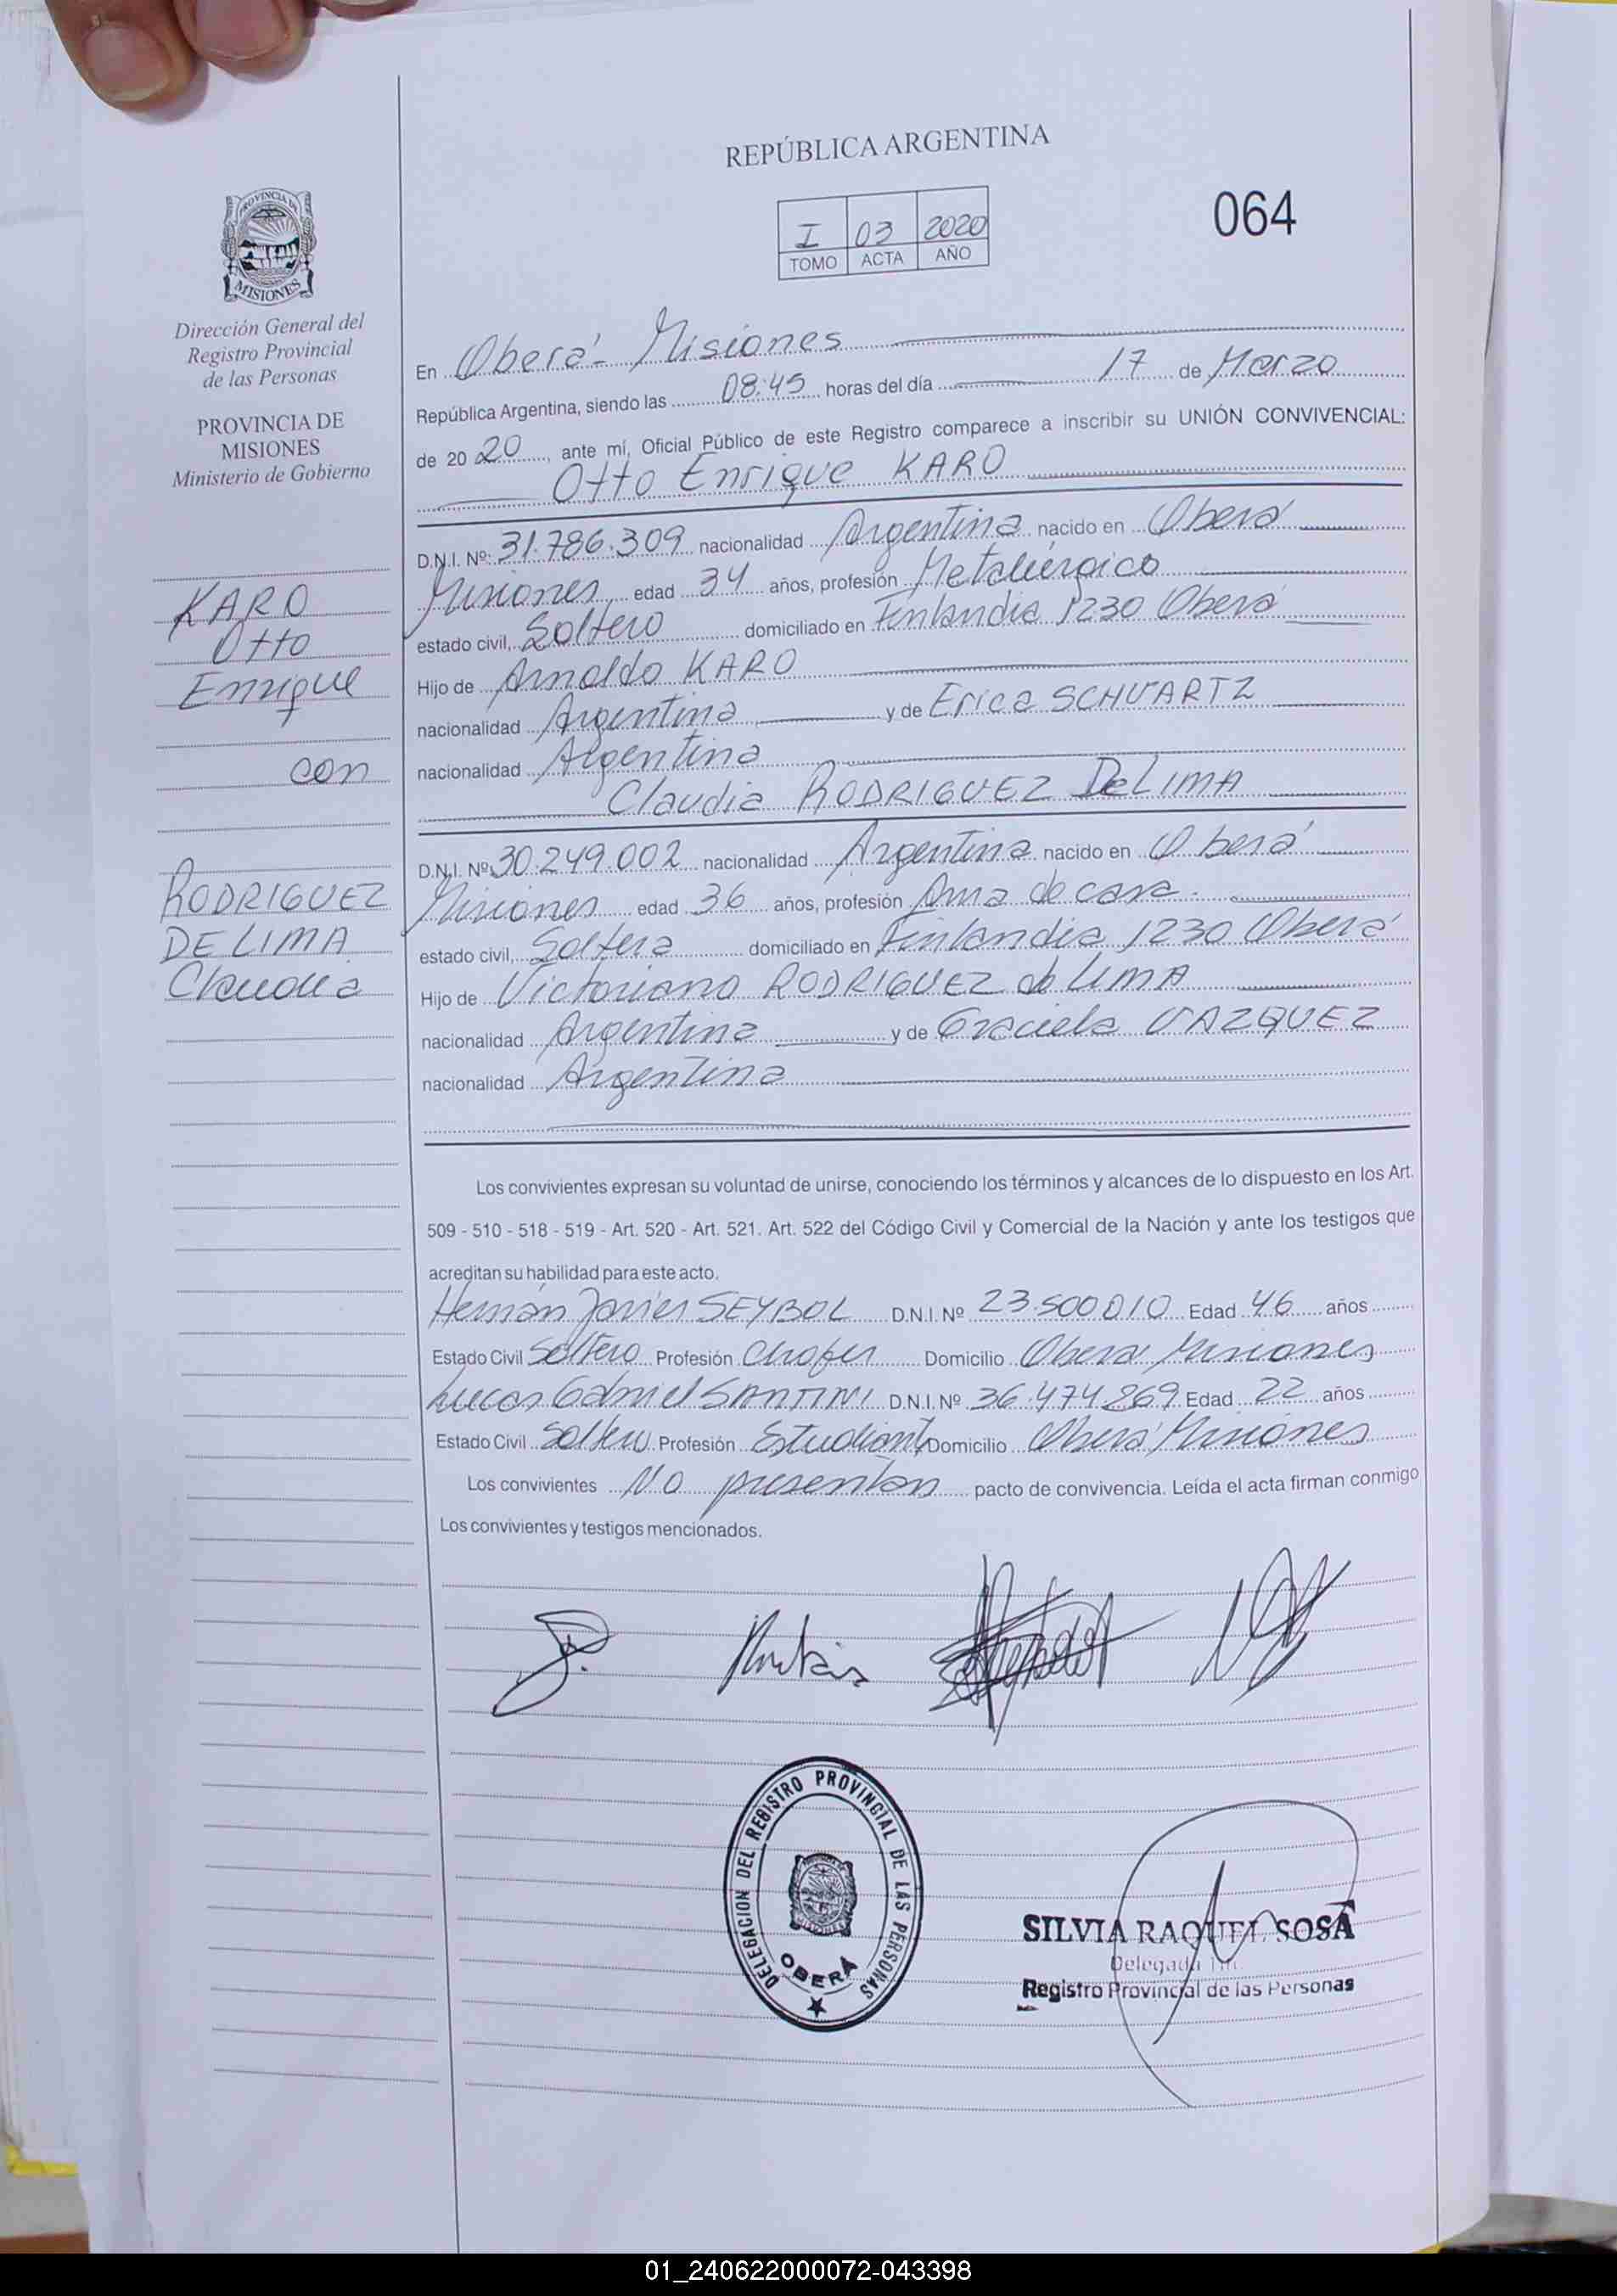 REPÚBLICA ARGENTINA
I 03 2020
TOMO ACTA AÑO
064
PROVINCIA DE
MISIONES
Dirección General del
Registro Provincial
de las Personas
PROVINCIA DE
MISIONES
Ministerio de Gobierno
KARO
Otto
Enrique
con
RODRIGUEZ
DE LIMA
Claudia
En Oberá - Misiones
República Argentina, siendo las 08:45 horas del día 17 de Marzo
de 20 20, ante mí, Oficial Público de este Registro comparece a inscribir su UNIÓN CONVIVENCIAL:
Otto Enrique KARO
D.N.I. Nº: 31.786.309 nacionalidad Argentina nacido en Oberá
Misiones edad 34 años, profesión Metalúrgico
estado civil, Soltero domiciliado en Finlandia 1230 Oberá
Hijo de Arnoldo KARO
nacionalidad Argentina y de Erica SCHVARTZ
nacionalidad Argentina
Claudia RODRIGUEZ DeLIMA
D.N.I. Nº 30.249.002 nacionalidad Argentina nacido en Oberá
Misiones edad 36 años, profesión Ama de casa.
estado civil, Soltera domiciliado en Finlandia 1230 Oberá
Hijo de Victoriano RODRIGUEZ de LIMA
nacionalidad Argentina y de Graciela VAZQUEZ
nacionalidad Argentina
Los convivientes expresan su voluntad de unirse, conociendo los términos y alcances de lo dispuesto en los Art.
509 - 510 - 518 - 519 - Art. 520 - Art. 521. Art. 522 del Código Civil y Comercial de la Nación y ante los testigos que
acreditan su habilidad para este acto.
Hernán Javier SEYBOL D.N.I. Nº 23.500.010 Edad 46 años
Estado Civil Soltero Profesión Chofer Domicilio Oberá Misiones
Lucas Gabriel SANTINI D.N.I. Nº 36.474.869 Edad 22 años
Estado Civil Soltero Profesión Estudiante Domicilio Oberá Misiones
Los convivientes No presentan pacto de convivencia. Leída el acta firman conmigo
Los convivientes y testigos mencionados.
DELEGACION DEL REGISTRO PROVINCIAL DE LAS PERSONAS
OBERÁ
SILVIA RAQUEL SOSA
Delegada
Registro Provincial de las Personas
01_240622000072-043398